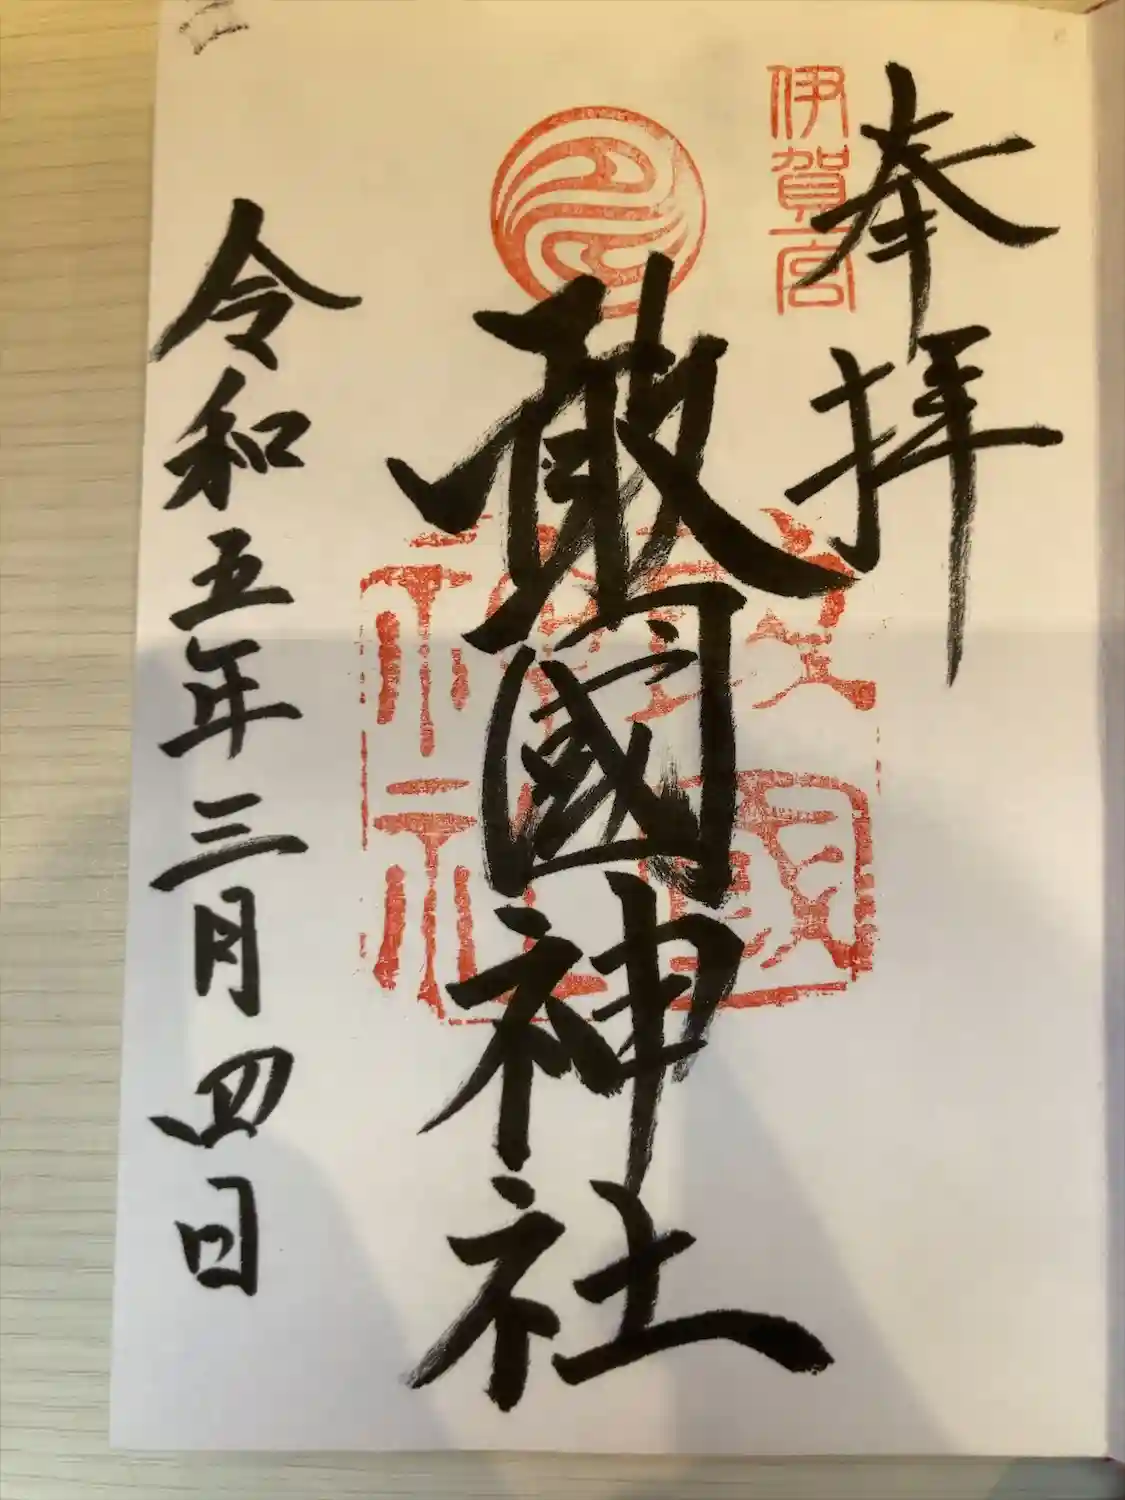 奉拝
伊賀一宮
敢國神社
敢國神社
令和五年三月四日